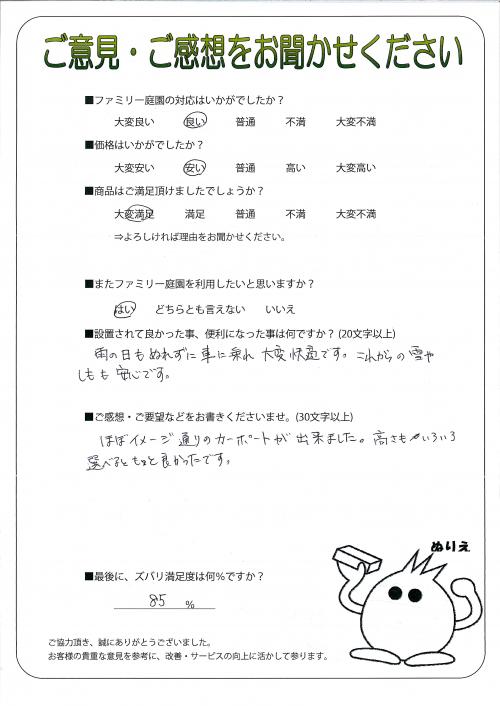 ご意見・ご感想をお聞かせください
■ファミリー庭園の対応はいかがでしたか？
大変良い 良い 普通 不満 大変不満
■価格はいかがでしたか？
大変安い 安い 普通 高い 大変高い
■商品はご満足頂けましたでしょうか？
大変満足 満足 普通 不満 大変不満
⇒よろしければ理由をお聞かせください。
■またファミリー庭園を利用したいと思いますか？
はい どちらとも言えない いいえ
■設置されて良かった事、便利になった事は何ですか？(20文字以上)
雨の日もぬれずに車に乗れ大変快適です。これからの雪や
しもも安心です。
■ご感想・ご要望などをお書きくださいませ。(30文字以上)
ほぼイメージ通りのカーポートが出来ました。高さもいろいろ
選べるともっと良かったです。
ぬりえ
■最後に、ズバリ満足度は何％ですか？
85 ％
ご協力頂き、誠にありがとうございました。
お客様の貴重な意見を参考に、改善・サービスの向上に活かして参ります。